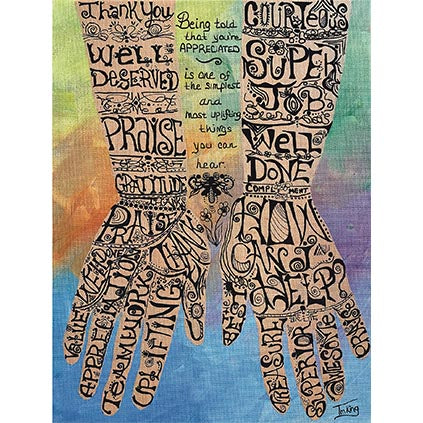 Thank You
Well
Deserved
Praise
Gratitud
Praise
Thank
Appreci
Teamwork
Uplifting
Being told
that you're
APPRECIATED
is one of
the simplest
and
most uplifting
things
you can
hear.
Courteous
Super
Job
Well
Done
Compliment
How
Can I
Help
Best
Treasure
Superior
Awesome
Praise